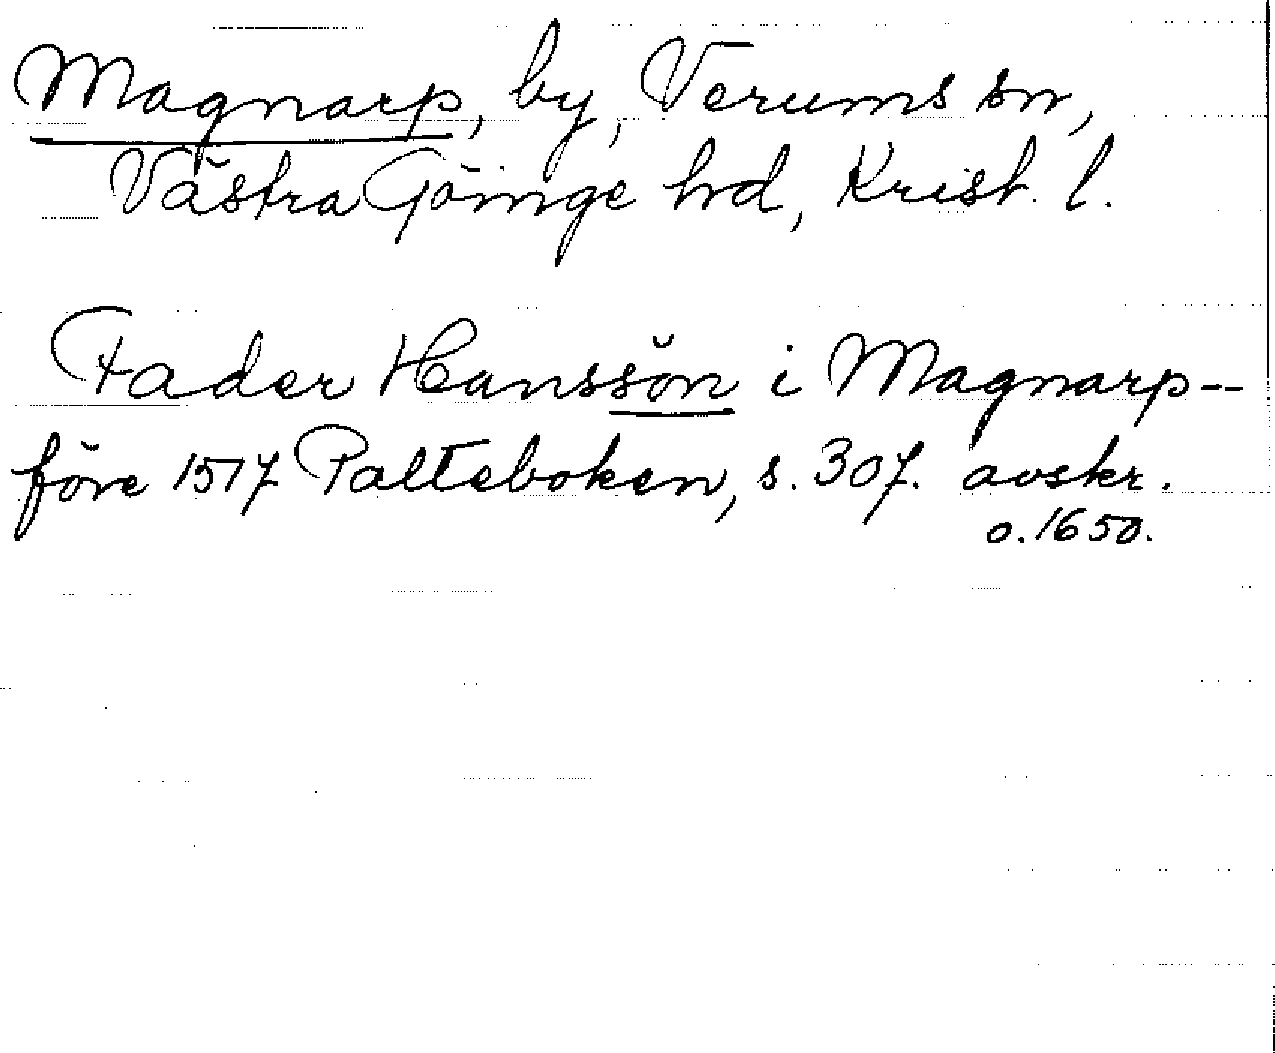 Magnarp, by, Verums sn,
Västra Göinge hd, Krist. l.
Fader Hanssön i Magnarp--
före 1517 Palteboken, s. 307. avskr.
o. 1650.